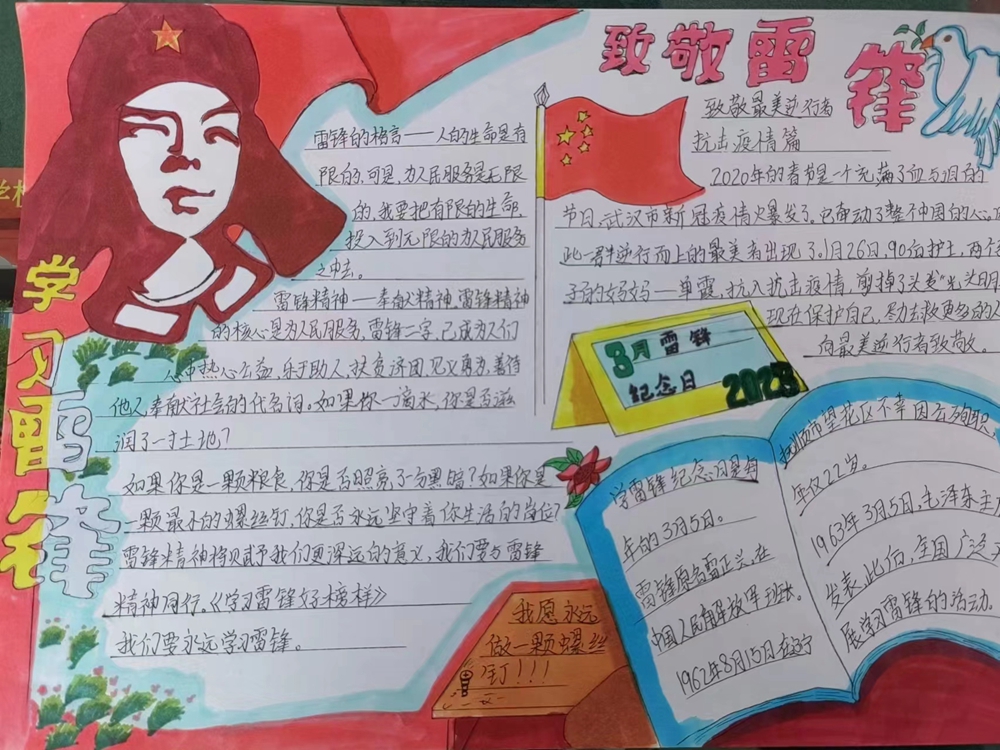 致敬雷锋
学习雷锋
雷锋的格言——人的生命是有
限的,可是,为人民服务是无限
的,我要把有限的生命,
投入到无限的为人民服务
之中去。
雷锋精神——奉献精神,雷锋精神
的核心是为人民服务,雷锋二字,已成为人们
热心公益,乐于助人,扶贫济困,见义勇为,善待
他人,奉献社会的代名词。如果你一滴水,你是否滋
润了一寸土地?
如果你是一颗粮食,你是否照亮了分黑暗?如果你是
一颗最小的螺丝钉,你是否永远坚守着你生活的岗位?
雷锋精神将赋予我们更深远的意义,我们要与雷锋
精神同行。《学习雷锋好榜样》
我们要永远学习雷锋。
致敬最美逆行者
抗击疫情篇
2020年的春节是一个充满了血与泪的
节日,武汉市新冠疫情火爆发了,也牵动了整个中国的人心
此一群逆行而上的最美者出现了。1月26日,90后护士,两个
孩子的妈妈——单霞,投入抗击疫情,剪掉了头发"光头
现在保护自己,尽力去救更多的人
向最美逆行者致敬。
3月雷锋
纪念日 2023
学雷锋纪念日是每
年的3月5日。
雷锋原名雷正兴,在
中国人民解放军班长。
1962年8月15日在辽宁
抚顺市望花区不幸因公殉职
年仅22岁。
1963年3月5日,毛泽东主
发表,此后,全国广泛开
展学习雷锋的活动。
我愿永远
做一颗螺丝
钉!!!